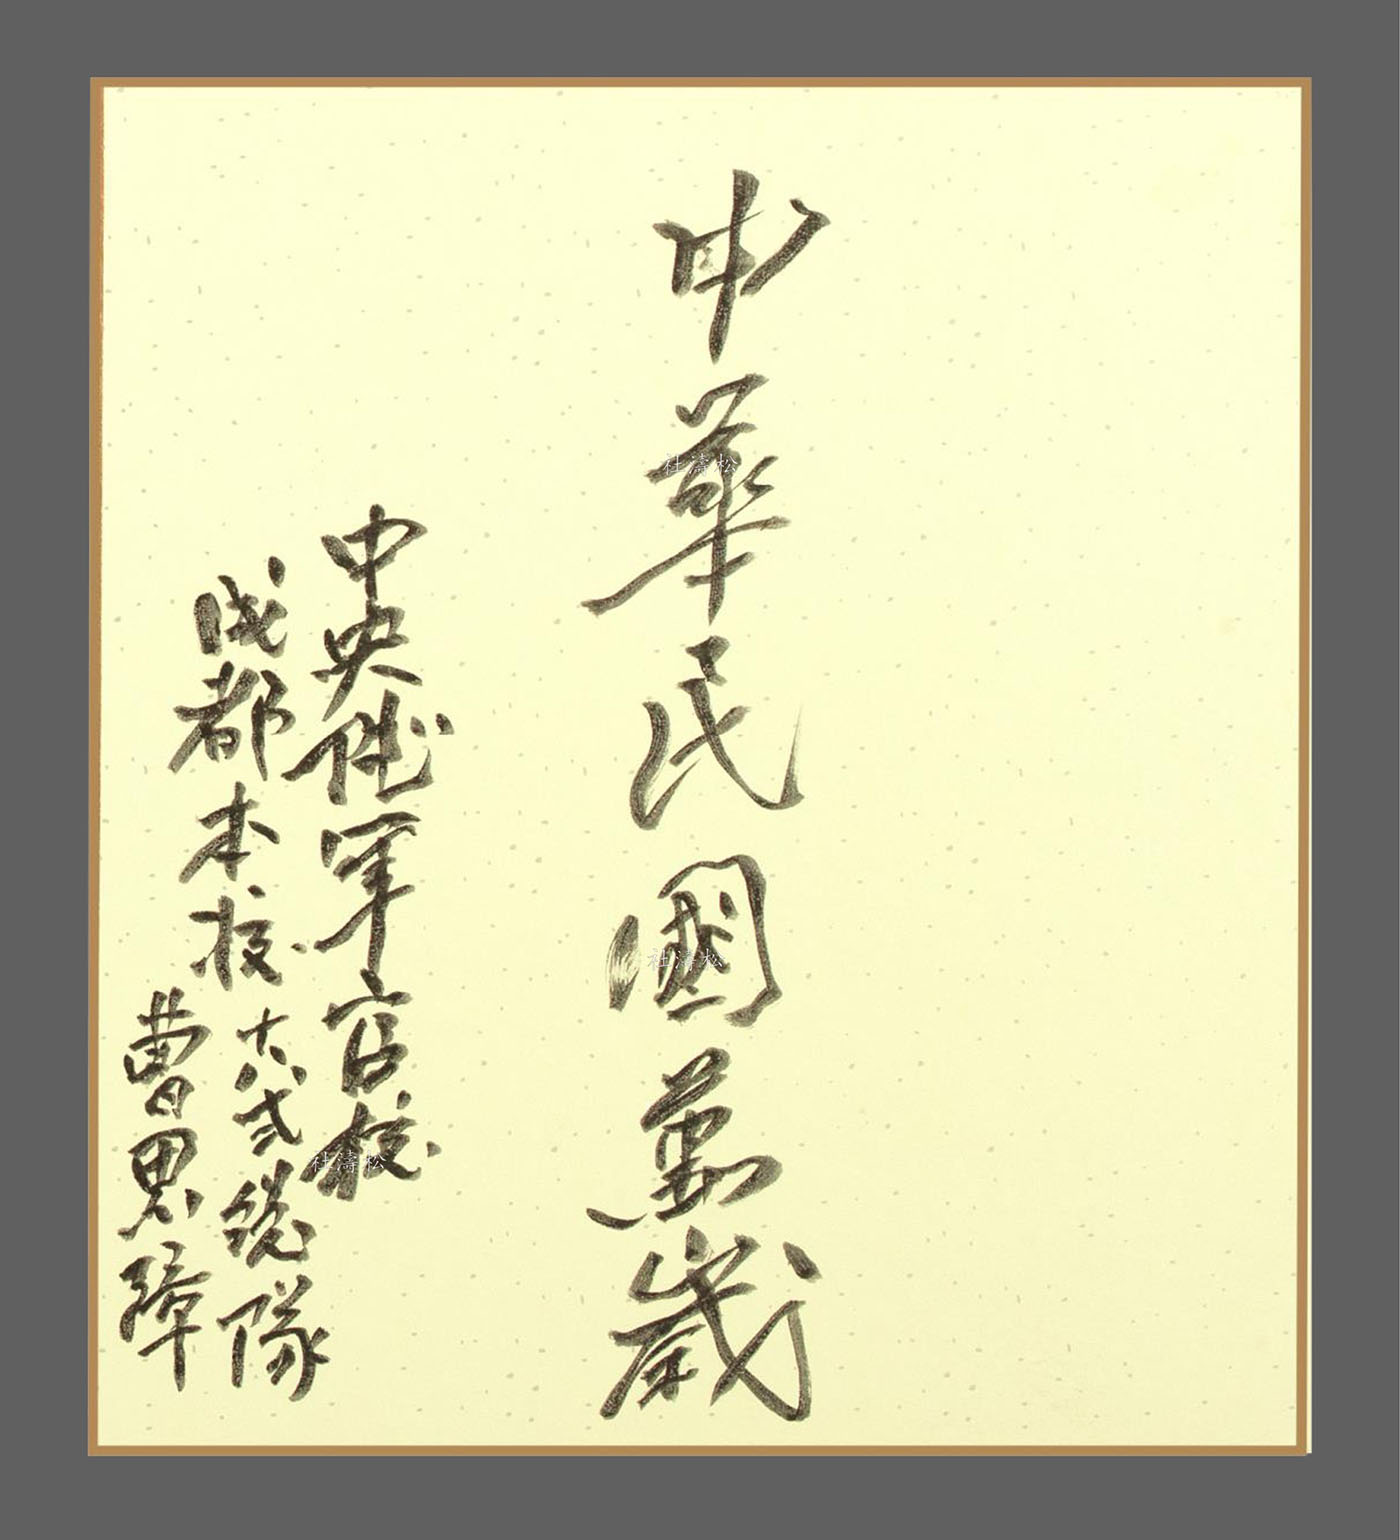 中華民國萬歲
中央陸軍官校
成都本校十八弍總隊
曹思璋
杜濤松
杜濤松
杜濤松